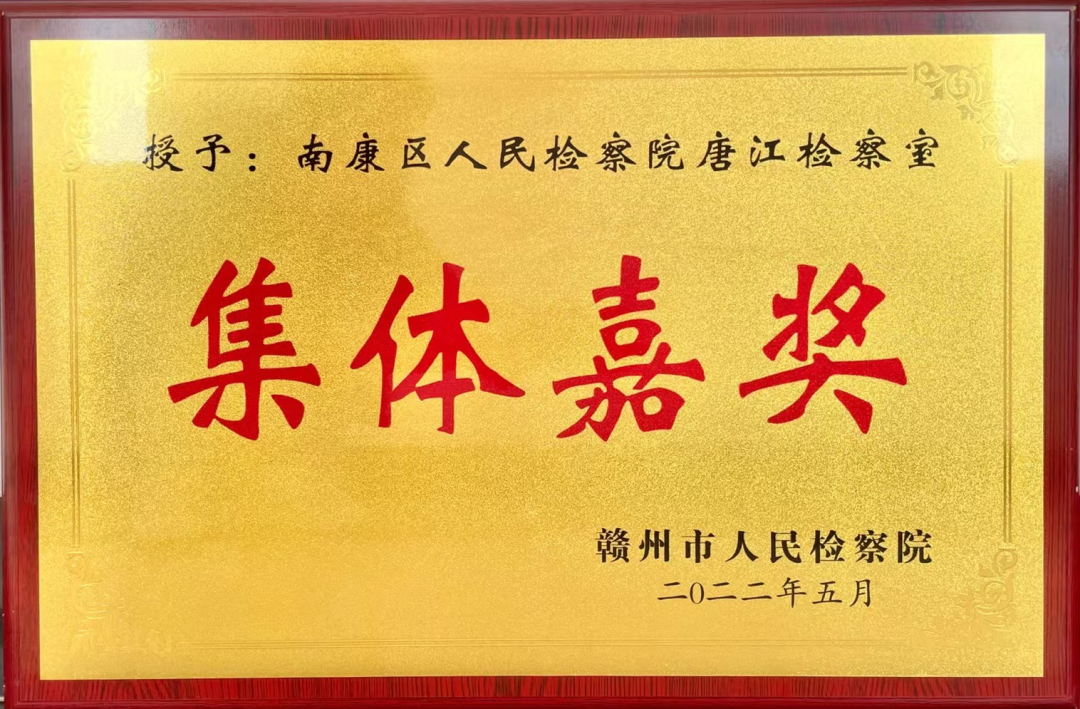 授予：南康区人民检察院唐江检察室
集体嘉奖
赣州市人民检察院
二0二二年五月